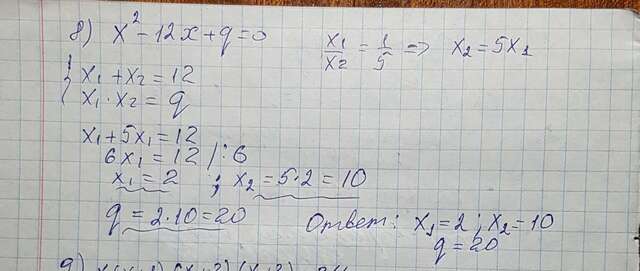 8) x² - 12x + q = 0    x₁/x₂ = 1/5 => x₂ = 5x₁
{ x₁ + x₂ = 12
x₁ · x₂ = q
x₁ + 5x₁ = 12
6x₁ = 12 / : 6
x₁ = 2 ; x₂ = 5 · 2 = 10
q = 2 · 10 = 20    Ответ: x₁ = 2 ; x₂ = 10
q = 20